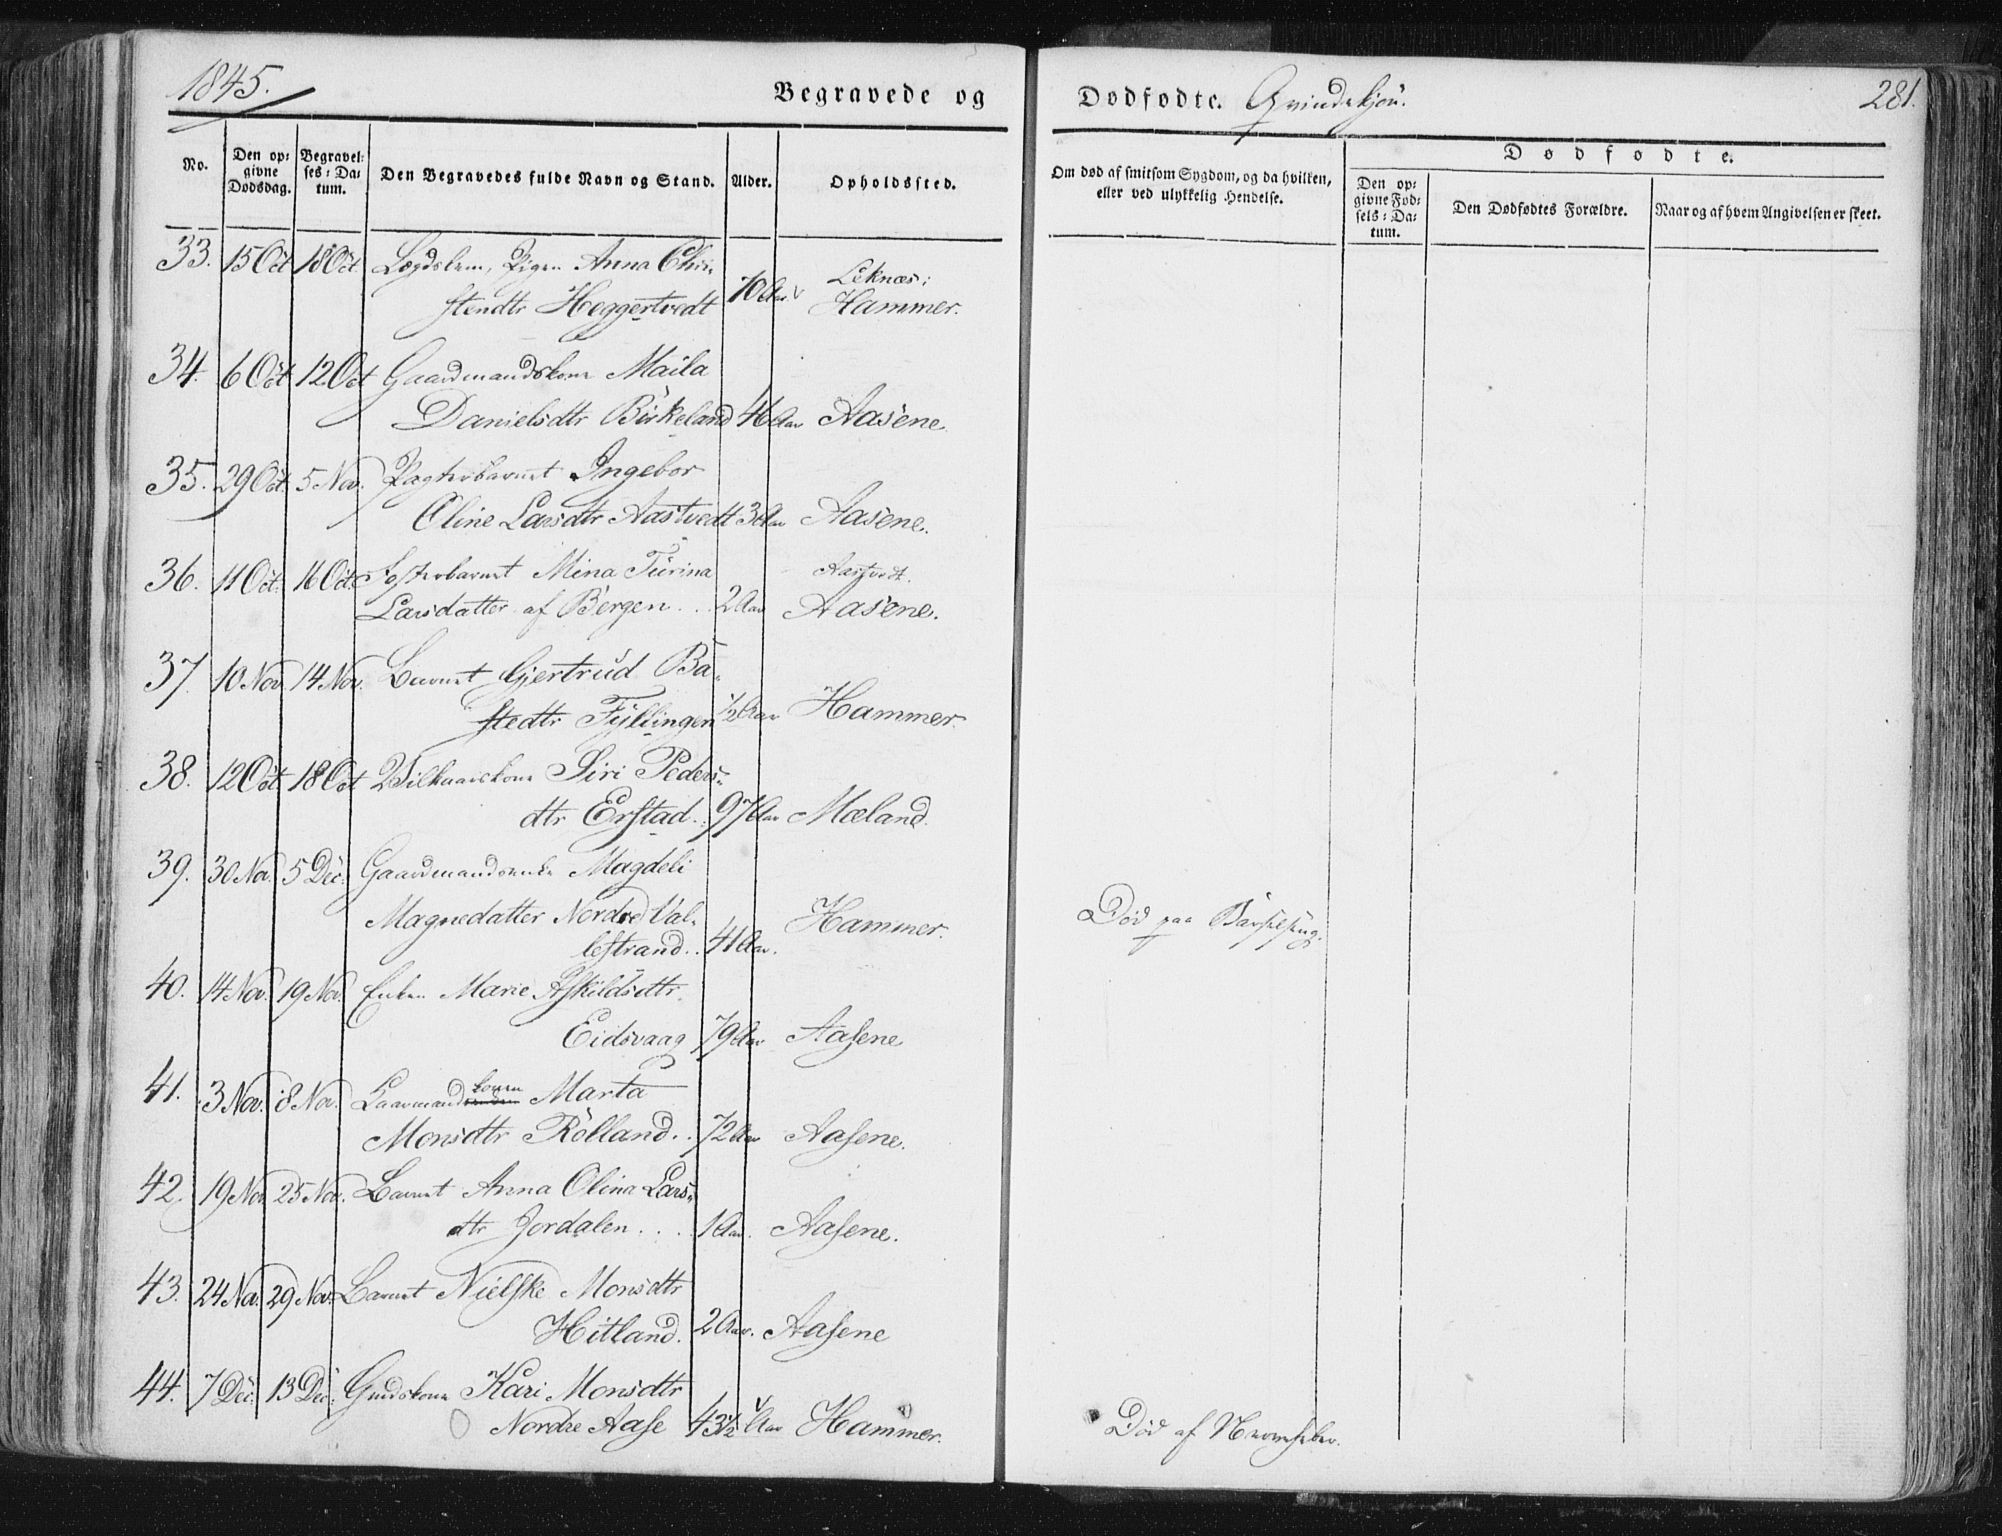 1845.
Begravede og
Dødfødte. Qvindekjøn.
281.
No.
Den op-
givne
Dødsdag.
Begravel-
ses-Da-
tum.
Den Begravedes fulde Navn og Stand.
Alder.
Opholdssted.
Om død af smitsom Sygdom, og da hvilken,
eller ved ulykkelig Hendelse.
Dødfødte.
Den op-
givne Fød-
sels-Da-
tum.
Den Dødfødtes Forældre.
Naar og af hvem Angivelsen er skeet.
33. 15 Oct 18 Oct Lægdslem, Pigen Anna Chri-
stendtr Heggertvedt 70 Aar Leknæs:
Hammer.
34. 6 Oct 12 Oct Gaardmandskone Maila
Danielsdtr Birkeland 46 Aar Aasene
35. 29 Oct. 5 Nov. Pagterbarnet Ingebor
Oline Larsdtr Aastvedt 3 Aar Aasene.
36. 11 Oct. 16 Oct. Fosterbarnet Mina Turina Aastvedt.
Larsdatter af Bergen.. 2 Aar Aasene.
37. 10 Nov. 14 Nov. Barnet Gjertrud Ba-
stedtr Fyllingen 1/2 Aar Hammer.
38. 12 Oct. 18 Oct Vilkaarskone Siri Peders-
dtr Erstad.. 97 Aar Mæland.
39. 30 Nov. 5 Dec. Gaardmandsenke Magdeli
Magnedatter Nordre Val-
Hammer. Død paa Barselseng.
lestrand.. 41 Aar.
40. 14 Nov. 19 Nov. Enken Marie Askildsdtr.
Eidsvaag 79 Aar Aasene
41. 3 Nov. 8 Nov. Gaarmands konen Marta
Monsdtr Rölland.. 72 Aar Aasene.
42. 19 Nov 25 Nov. Barnet Anna Olina Lars-
dtr Jordalen.... 1 Aar. Aasene.
43. 24 Nov. 29 Nov. Barnet Nielske Monsdtr
Hitland. 2 Aar. Aasene
44. 7 Dec. 13 Dec. Kari Monsdtr
Nordre Aase 43 1/2 Aar Hammer. Død af Nervefeber.